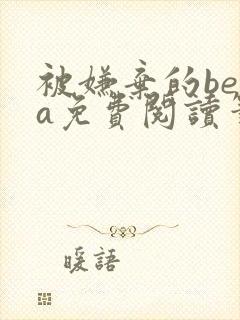 被嫌棄的be
a免費閱讀
暖語